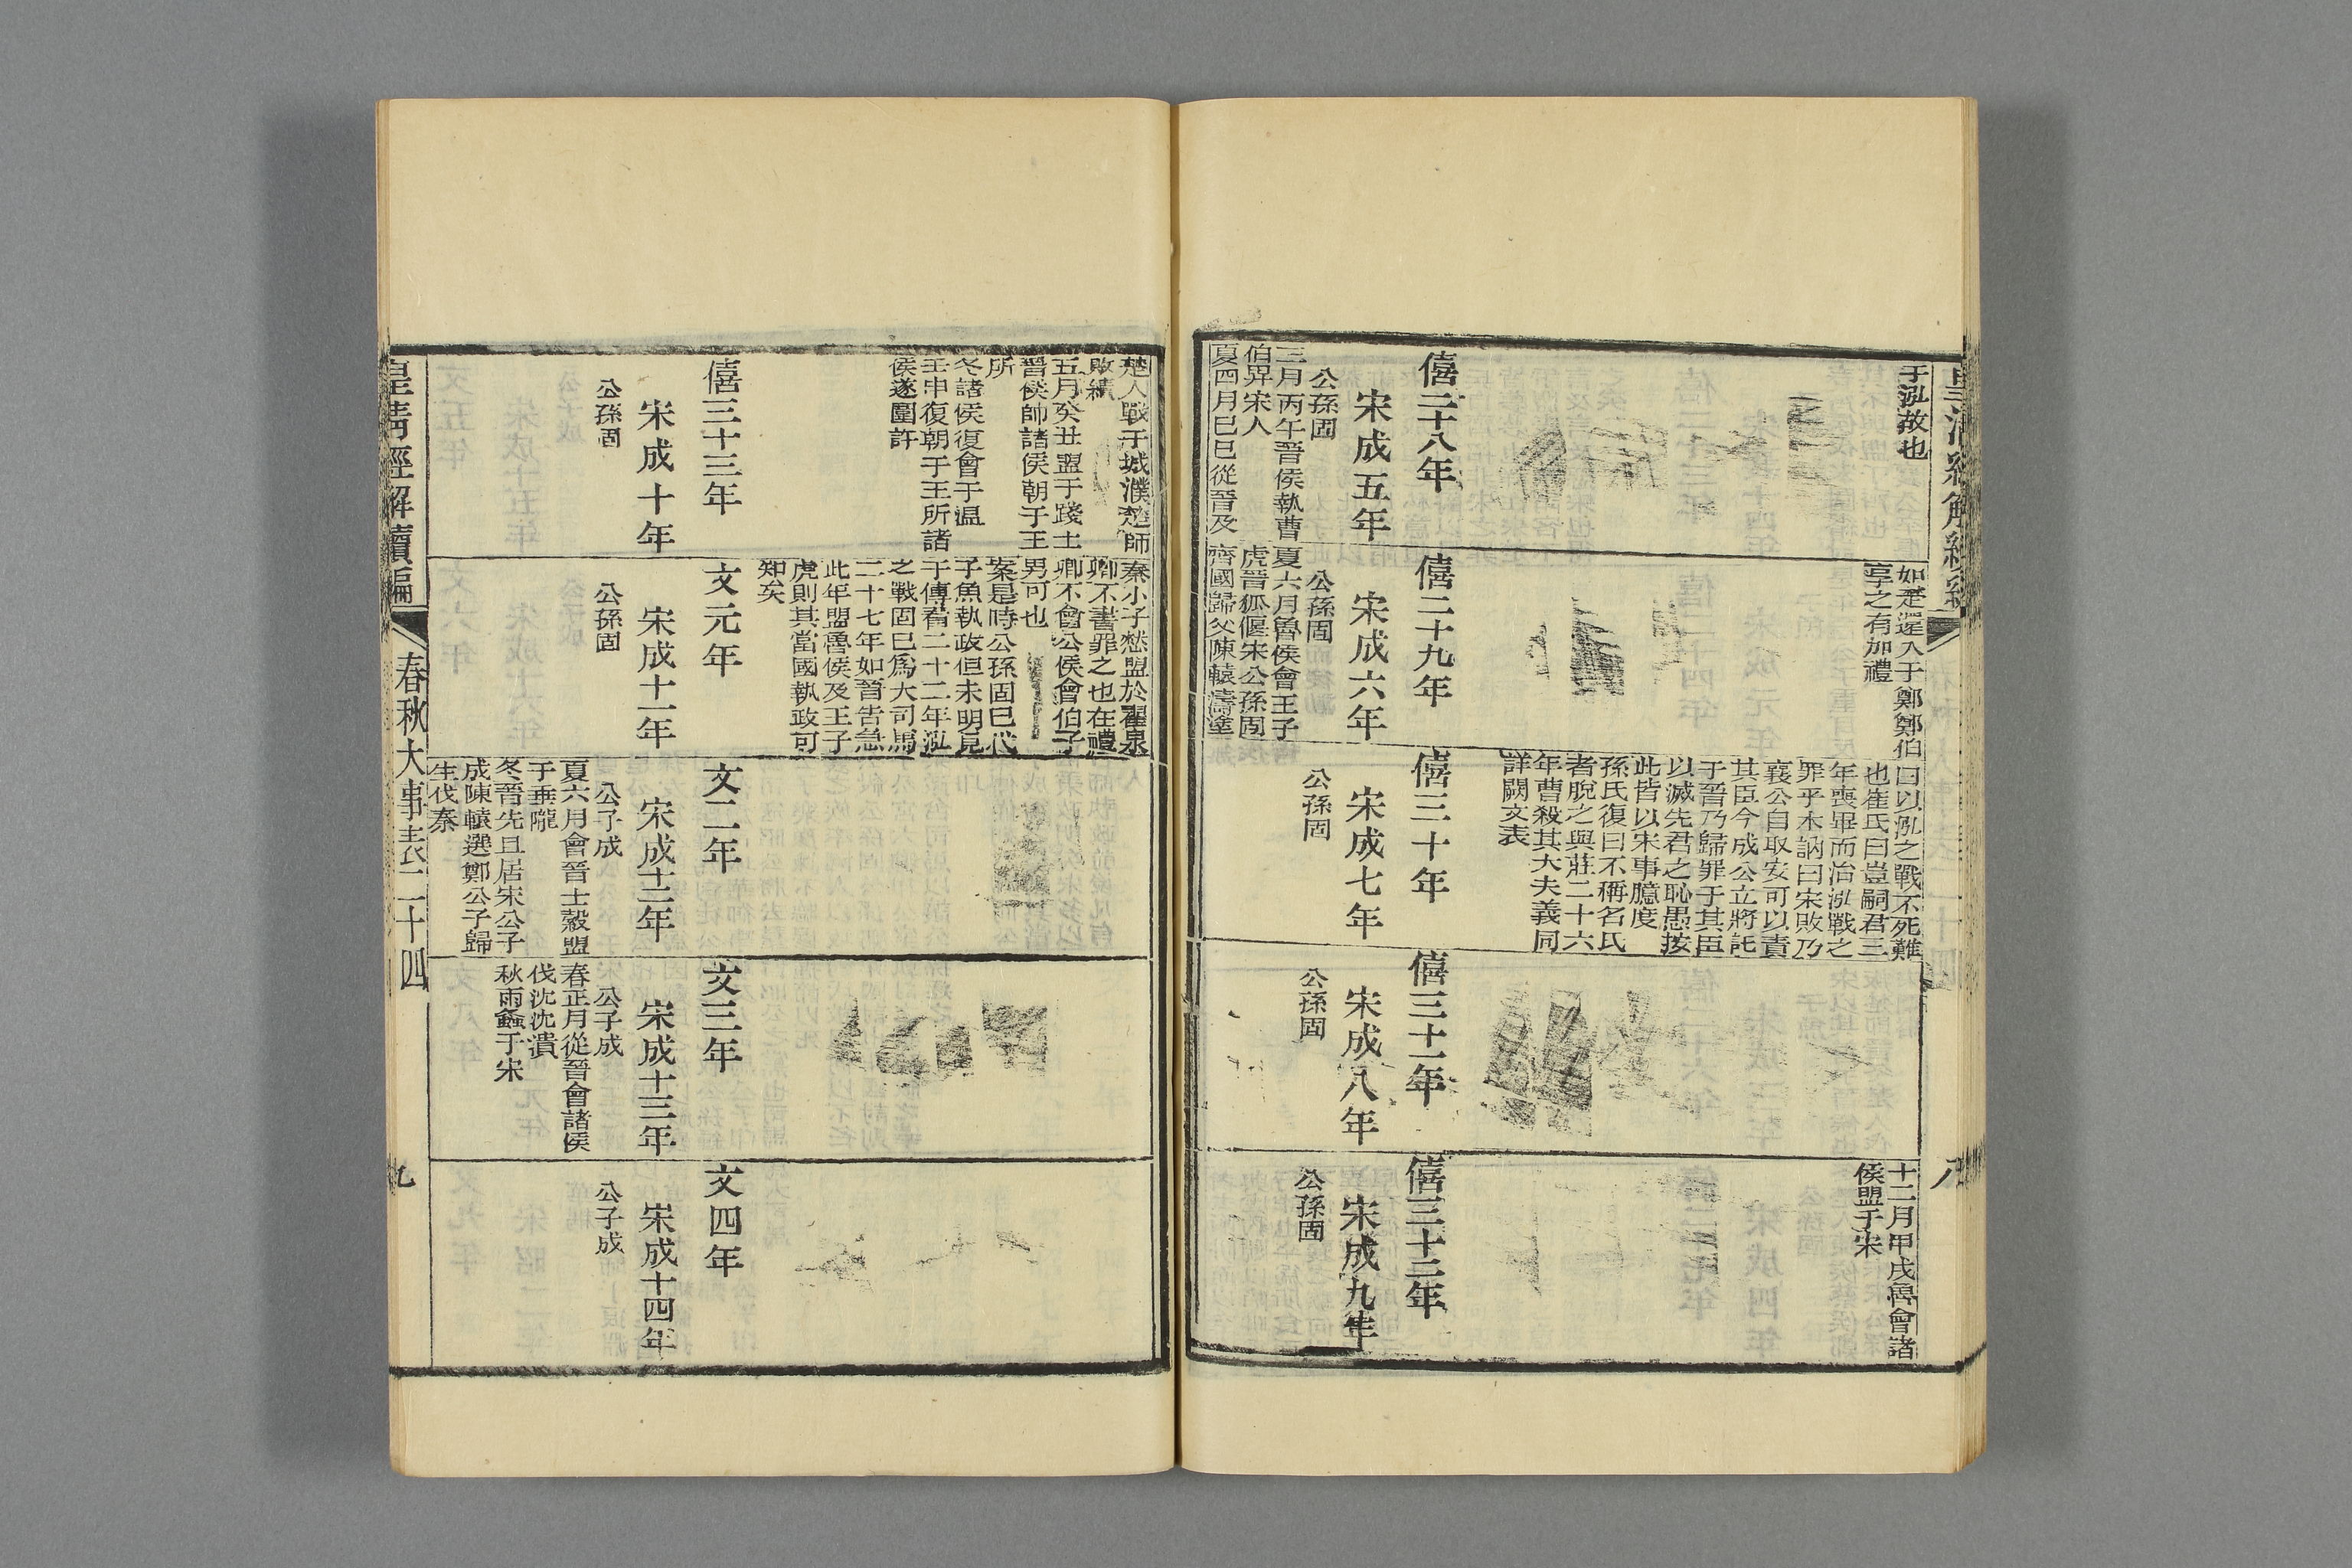 于泓故也
如楚還入于鄭鄭伯
享之有加禮
曰以泓之戰不死難
也崔氏曰豈嗣君三
年喪畢而治泓戰之
罪乎木訥曰宋敗乃
襄公自取安可以責
其臣今成公立將託
于晉乃歸罪于其臣
以滅先君之恥愚按
此皆以宋事臆度
孫氏復曰不稱名氏
者脫之與莊二十六
年曹殺其大夫義同
詳闕文表
十二月甲戌魯會諸
侯盟于宋
僖二十八年
宋成五年
公孫固
三月丙午晉侯執曹
伯畀宋人
夏四月己巳從晉及
僖二十九年
宋成六年
公孫固
夏六月魯侯會王子
虎晉狐偃宋公孫固
齊國歸父陳轅濤塗
僖三十年
宋成七年
公孫固
僖三十一年
宋成八年
公孫固
僖三十二年
宋成九年
公孫固
八
楚人戰于城濮楚師
敗績
五月癸丑盟于踐土
晉侯師諸侯朝于王
所
冬諸侯復會于溫
壬申復朝于王所諸
侯遂圍許
秦小子憖盟於翟泉
卿不書罪之也在禮
卿不會公侯會伯子
男可也
案是時公孫固已代
子魚執政但未明見
于傳看二十二年泓
之戰固已為大司馬
二十七年如晉告急
此年盟魯侯及王子
虎則其當國執政可
知矣
僖三十三年
宋成十年
公孫固
文元年
宋成十一年
公孫固
文二年
宋成十二年
公子成
夏六月會晉士縠盟
于垂隴
冬晉先且居宋公子
成陳轅選鄭公子歸
生伐秦
文三年
宋成十三年
公子成
春正月從晉會諸侯
伐沈沈潰
秋雨螽于宋
文四年
宋成十四年
公子成
皇清經解續編
春秋大事表二十四
九